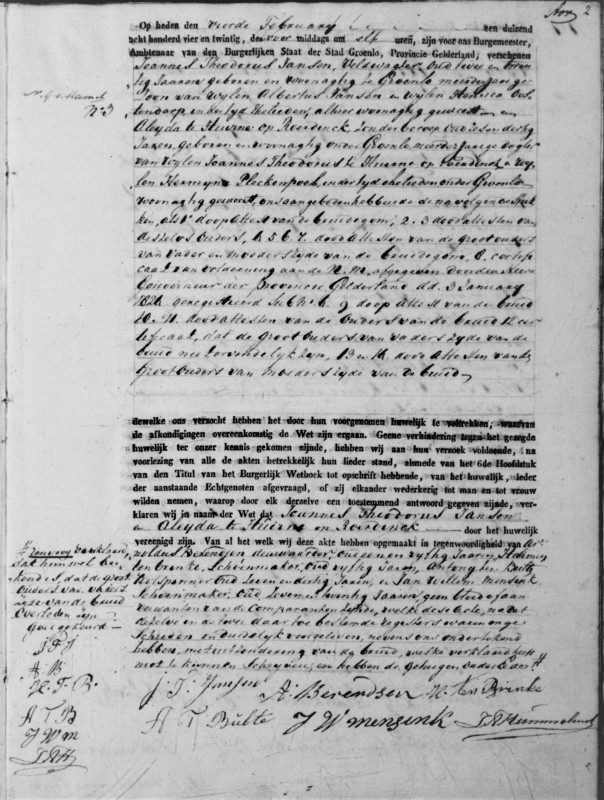 Nov 2
Op heden den vierde February een duizend
acht honderd vier en twintig, des voor middags om elf uren, zijn voor ons Burgemeester,
Ambtenaar van den Burgerlijken Staat der Stad Groenlo, Provincie Gelderland, verschenen
Joannes Theodorus Jansen, Oud twee en
Jaaren geboren en woonagtig te Groenlo meerderjarige
N.º 3
Zoon van wylen Albertus Jansen en wylen Henrica
in der tyd Ehelieden, alhier woonagtig geweest en
Aleyda te Huirne op Reerdinck zonder beroep Oud
Jaren, geboren en woonagtig onder Groenlo, meerderjarige dogter
van wylen Joannes Theodorus te Huirne op Reerdinck en wy-
len Hermyna Pleckenpoel, in der tyd ehelieden onder Groenlo
woonagtig geweest, ons aangeboden hebbende de navolgende stuk-
ken, als 1º doop Attest van de bruidegom, 2. 3 dood attesten van
deszelvs Ouders, 4. 5 6 7. dood attesten van de groot ouders
van vader en moeders zyde van de bruidegom, 8. certifi-
caat van de N. M. afgegeven door den Heere
Gouverneur der Provincie Gelderland d.d. 3 January
1824 geregistreerd Sub Nº 6. 9 doop Attest van de bruid
10. 11. dood attesten van de Ouders van de bruid 12 cer-
tificaat, dat de Groot Ouders van vaders zyde van de
bruid zyn, 13 en 14. dood Attesten van de
Groot Ouders van moeders zyde van de bruid
dewelke ons verzocht hebben het door hun voorgenomen huwelijk te voltrekken, waarvan
de afkondigingen overeenkomstig de Wet zijn ergaan. Geene verhindering tegen het gezegde
huwelijk ter onzer kennis gekomen zijnde, hebben wij aan hun verzoek voldoende, na
voorlezing van alle de akten betrekkelijk hun lieder stand, alsmede van het 6de Hoofdstuk
van den Titul van het Burgerlijk Wetboek tot opschrift hebbende, van het huwelijk, ieder
der aanstaande Echtgenoten afgevraagd, of zij elkander wederkerig tot man en tot vrouw
wilden nemen, waarop door elk derzelve een toestemmend antwoord gegeven zijnde, ver-
klaren wij in naam der Wet dat Joannes Theodorus Jansen
en Aleyda te Huirne op Reerdinck door het huwelijk
vereenigd zijn. Van al het welk wij deze akte hebben opgemaakt in tegenwoordigheid van Ar-
noldus Berendsen deurwaarder, Oud en vyftig Jaaren, Harmen
ten Brinke, Schoenmaker, Oud vyftig Jaren, Antony ten Bulte
Oud Zeven en dertig Jaren, en Jan Willem Mensink
Schoenmaker, Oud Zeven en twintig Jaaren, geen bloed of aan
verwanten van de Comparanten zynde, welke dese acte, na dat
dezelve in de twee daar toe bestemde registers was in ge-
schreven en duidelyk voorgelezen, nevens ons onderteekend
hebben, met uitzondering van de bruid, welke verklaard heeft
niet te kunnen Schryven
verklaard
dat hun wel be-
kend is, dat de groot
Ouders van vaders
zyde van de bruid
Overleden zyn
goed gekeurd
J T J
A B
H. T. B.
A T B
J W M
J. T. Jansen A: Berendsen H. ten Brinke
A T Bulte J W mensink